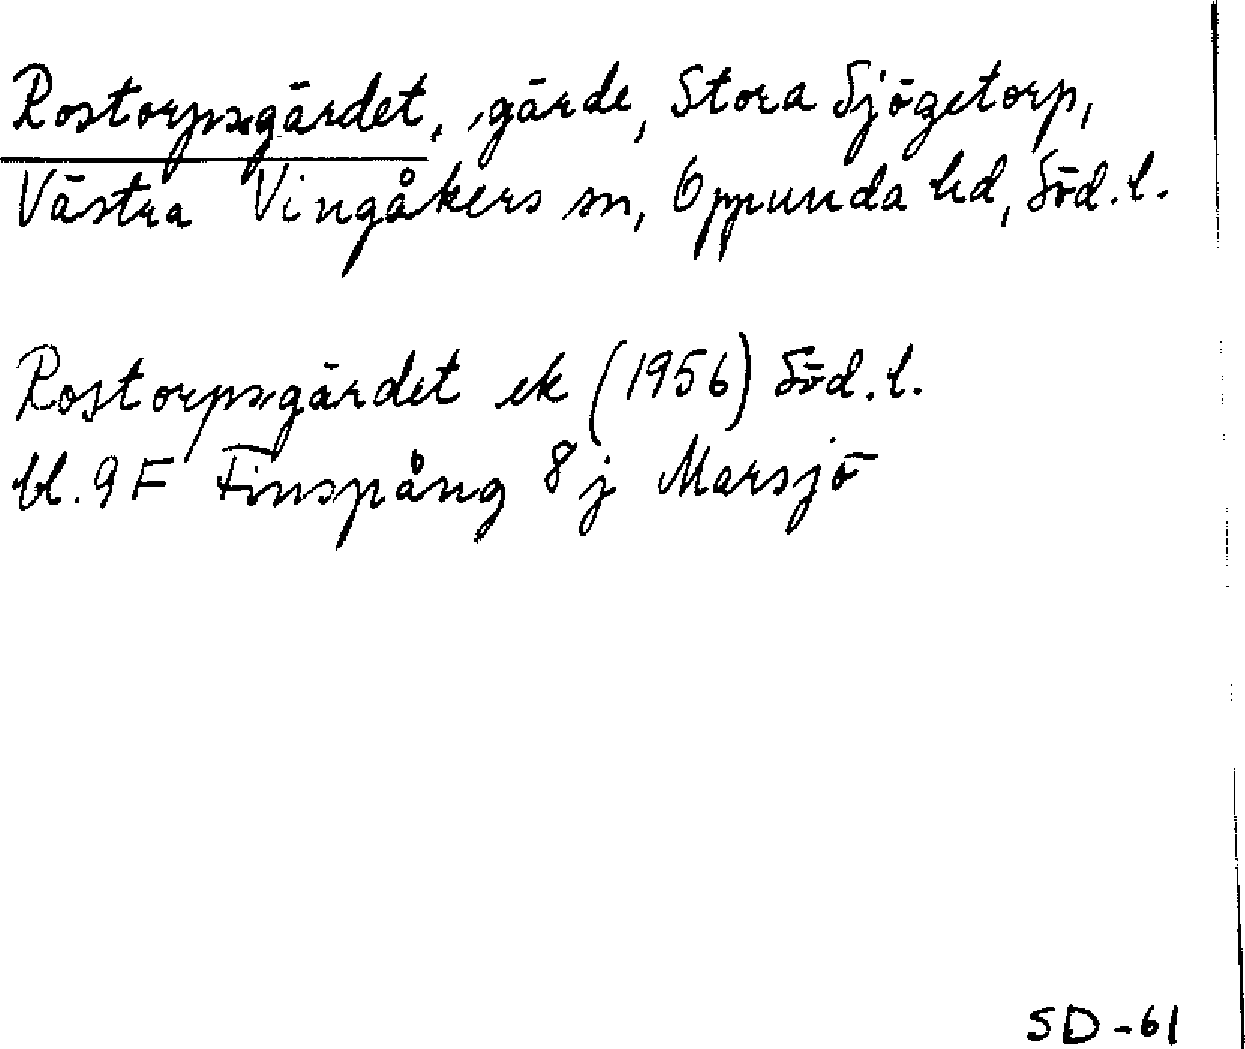 Rostorpsgärdet, gärde, Stora Sjögetorp,
Västra Vingåkers sn, Oppunda hd, Söd. l.
Rostorpsgärdet ek (1956) Söd. l.
bl. 9 F Finspång 8 j Marsjö
SD-61